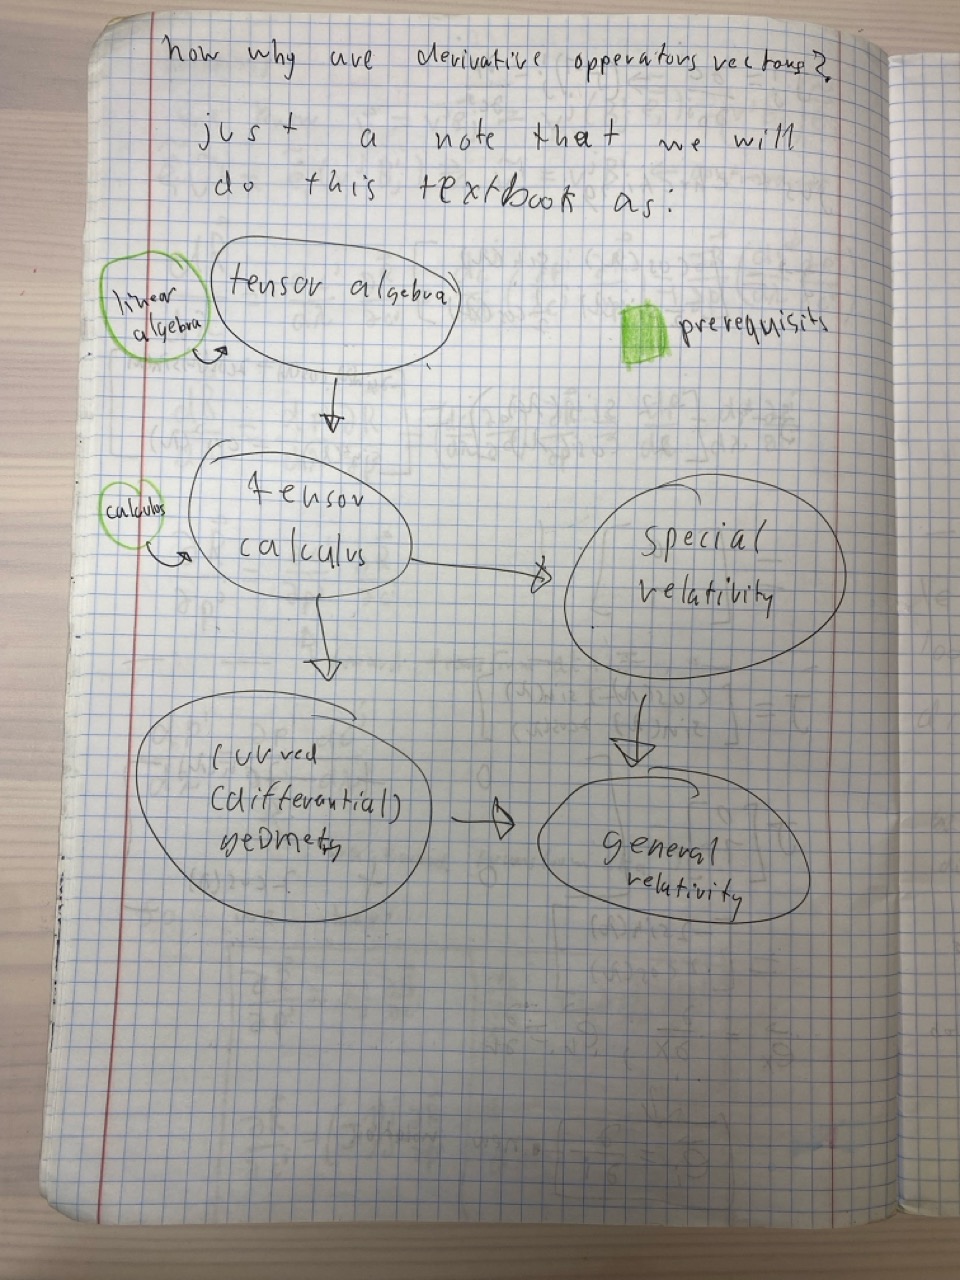 how why are derivative opperators vectors?
just a note that we will
do this textbook as:
linear
algebra
tensor algebra
prerequisits
calculus
tensor
calculus
special
relativity
curved
(differential)
geometry
general
relativity